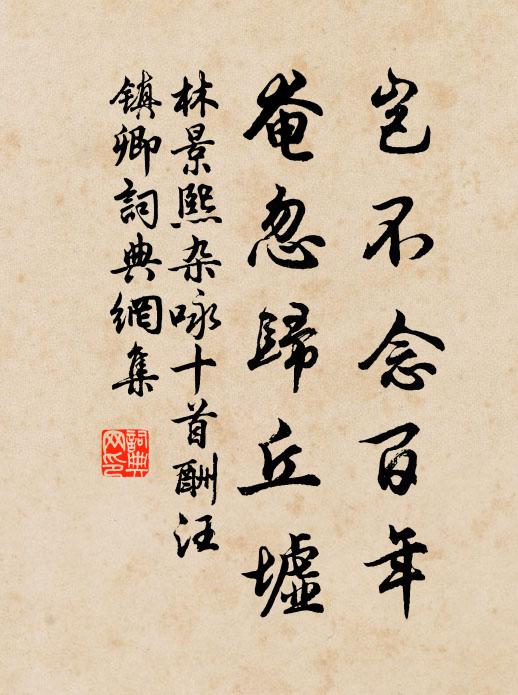 豈不念百年
奄忽歸丘墟
林景熙杂咏十首酬汪
镇卿詞典網集
詞典
网印